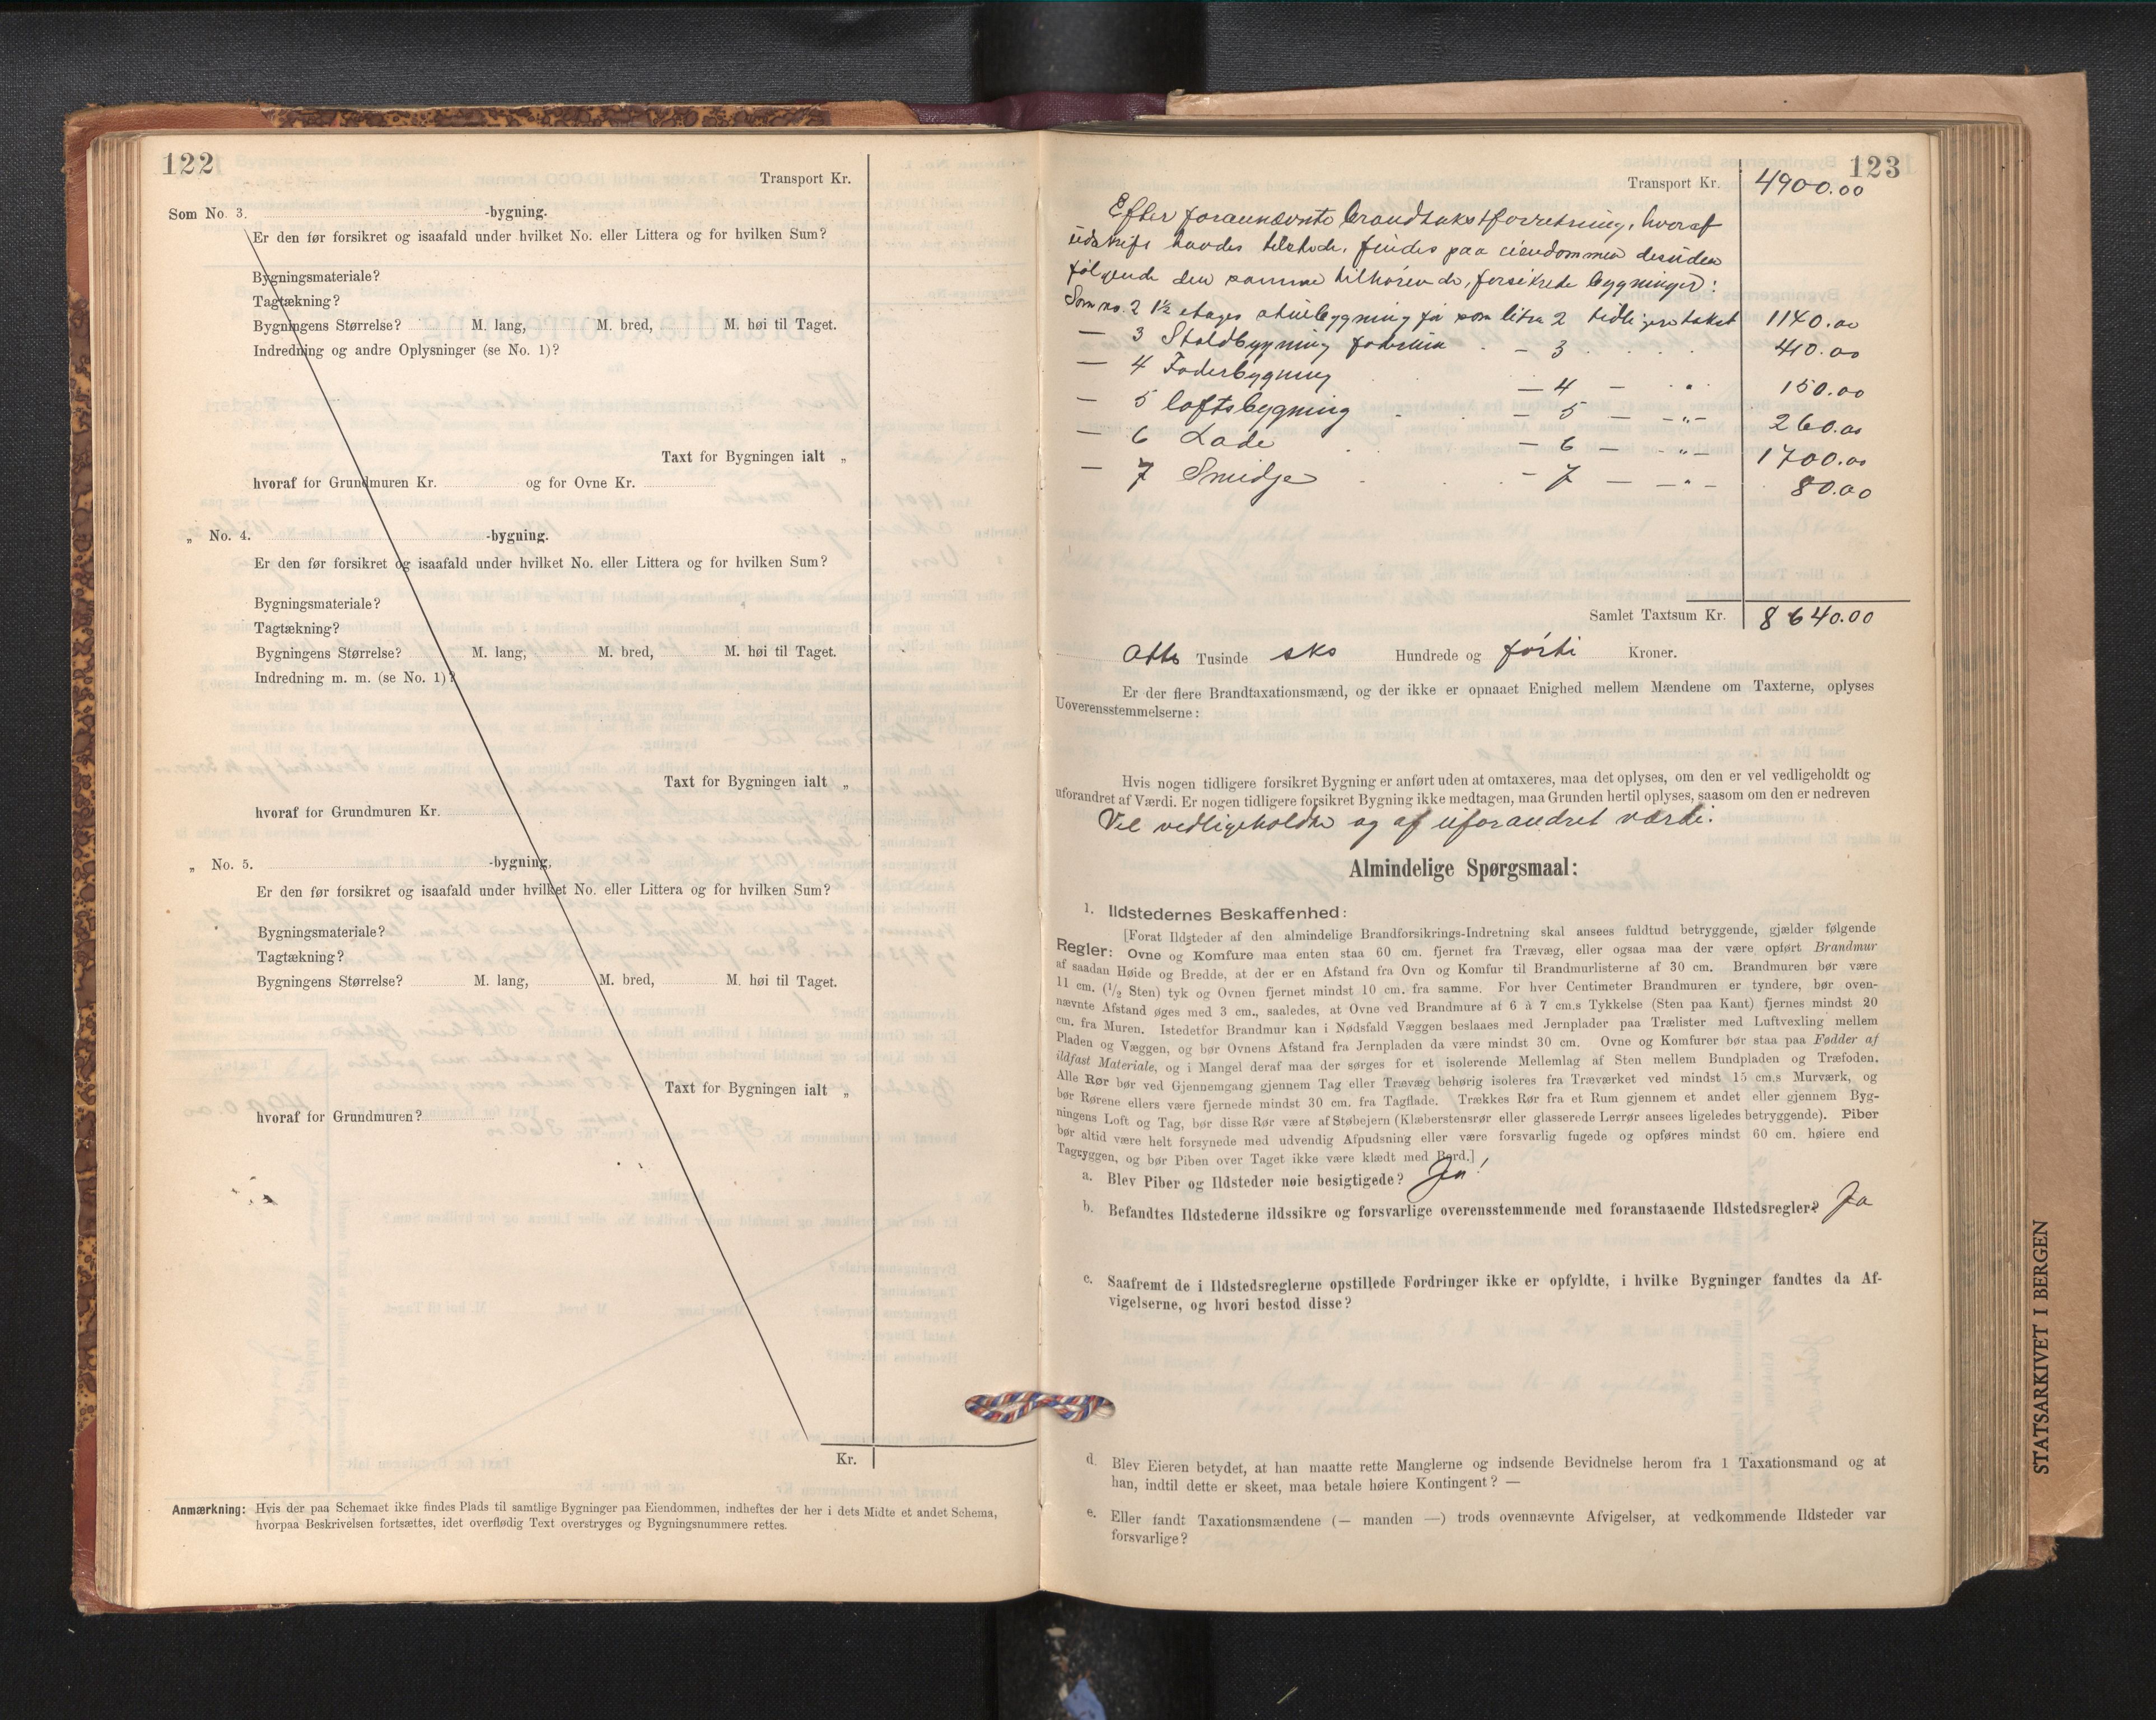 122
Transport Kr.
Som No. 3. -bygning.
Er den før forsikret og isaafald under hvilket No. eller Littera og for hvilken Sum?
Bygningsmateriale?
Tagtækning?
Bygningens Størrelse? M. lang, M. bred, M. høi til Taget.
Indredning og andre Oplysninger (se No. 1)?
Taxt for Bygningen ialt „
hvoraf for Grundmuren Kr. og for Ovne Kr.
„ No. 4. -bygning.
Er den før forsikret og isaafald under hvilket No. eller Littera og for hvilken Sum?
Bygningsmateriale?
Tagtækning?
Bygningens Størrelse? M. lang, M. bred, M. høi til Taget.
Indredning m. m. (se No. 1)?
Taxt for Bygningen ialt „
hvoraf for Grundmuren Kr.
„ No. 5. -bygning.
Er den før forsikret og isaafald under hvilket No. eller Littera og for hvilken Sum?
Bygningsmateriale?
Tagtækning?
Bygningens Størrelse? M. lang, M. bred, M. høi til Taget.
Taxt for Bygningen ialt „
hvoraf for Grundmuren?
Kr.
Anmærkning: Hvis der paa Schemaet ikke findes Plads til samtlige Bygninger paa Eiendommen, indheftes der her i dets Midte et andet Schema,
hvorpaa Beskrivelsen fortsættes, idet overflødig Text overstryges og Bygningsnummere rettes.
123
Transport Kr. 4900.00
Efter forannævnte brandtakstforretning, hvoraf
udskrift havdes tilstede, findes paa eiendommen desuden
følgende den samme tilhørende, forsikrede bygninger:
Som no. 2 1½ etages stuebygning før som litra 2 tidligere takst 1140.00
— 3 Staldbygning - 3 410.00
— 4 Foderbygning — 4 — " 150.00
— 5 Loftsbygning - 5 — — " — 260.00
— 6 Lade — 6 — — " — 1700.00
— 7 Smidje - 7 — — " — 80.00
Samlet Taxtsum Kr. 8640.00
Otte Tusinde sks Hundrede og førti Kroner.
Er der flere Brandtaxationsmænd, og der ikke er opnaaet Enighed mellem Mændene om Taxterne, oplyses
Uoverensstemmelserne:
Hvis nogen tidligere forsikret Bygning er anført uden at omtaxeres, maa det oplyses, om den er vel vedligeholdt og
uforandret af Værdi. Er nogen tidligere forsikret Bygning ikke medtagen, maa Grunden hertil oplyses, saasom om den er nedreven
Vel vedligeholdte og af uforandret værdi.
Almindelige Spørgsmaal:
1. Ildstedernes Beskaffenhed:
[Forat Ildsteder af den almindelige Brandforsikrings-Indretning skal ansees fuldtud betryggende, gjælder følgende
Regler: Ovne og Komfure maa enten staa 60 cm. fjernet fra Trævæg, eller ogsaa maa der være opført Brandmur
af saadan Høide og Bredde, at der er en Afstand fra Ovn og Komfur til Brandmurlisterne af 30 cm. Brandmuren bør være
11 cm. (1/2 Sten) tyk og Ovnen fjernet mindst 10 cm. fra samme. For hver Centimeter Brandmuren er tyndere, bør oven-
nævnte Afstand øges med 3 cm., saaledes, at Ovne ved Brandmure af 6 à 7 cm.s Tykkelse (Sten paa Kant) fjernes mindst 20
cm. fra Muren. Istedetfor Brandmur kan i Nødsfald Væggen beslaaes med Jernplader paa Trælister med Luftvexling mellem
Pladen og Væggen, og bør Ovnens Afstand fra Jernpladen da være mindst 30 cm. Ovne og Komfurer bør staa paa Fødder af
ildfast Materiale, og i Mangel deraf maa der sørges for et isolerende Mellemlag af Sten mellem Bundpladen og Træfoden.
Alle Rør bør ved Gjennemgang gjennem Tag eller Trævæg behørig isoleres fra Træværket ved mindst 15 cm.s Murværk, og
bør Rørene ellers være fjernede mindst 30 cm. fra Tagflade. Trækkes Rør fra et Rum gjennem et andet eller gjennem Byg-
ningens Loft og Tag, bør disse Rør være af Støbejern (Klæberstensrør eller glasserede Lerrør ansees ligeledes betryggende). Piber
bør altid være helt forsynede med udvendig Afpudsning eller være forsvarlig fugede og opføres mindst 60 cm. høiere end
Tagryggen, og bør Piben over Taget ikke være klædt med Bord.]
a. Blev Piber og Ildsteder nøie besigtigede? Ja!
b. Befandtes Ildstederne ildssikre og forsvarlige overensstemmende med foranstaaende Ildstedsregler? Ja
c. Saafremt de i Ildstedsreglerne opstillede Fordringer ikke er opfyldte, i hvilke Bygninger fandtes da Af-
vigelserne, og hvori bestod disse?
d. Blev Eieren betydet, at han maatte rette Manglerne og indsende Bevidnelse herom fra 1 Taxationsmand og at
han, indtil dette er skeet, maa betale høiere Kontingent? —
e. Eller fandt Taxationsmændene (— manden —) trods ovennævnte Afvigelser, at vedkommende Ildsteder var
forsvarlige?
STATSARKIVET I BERGEN